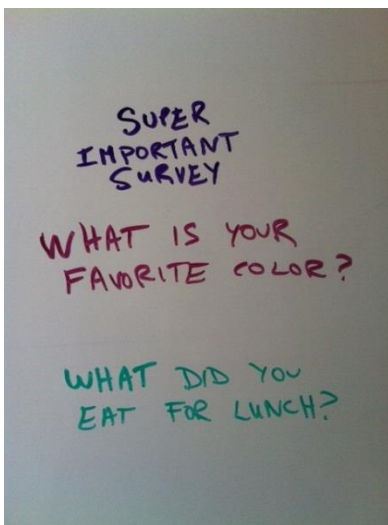 SUPER
IMPORTANT
SURVEY
WHAT IS YOUR
FAVORITE COLOR?
WHAT DID YOU
EAT FOR LUNCH?